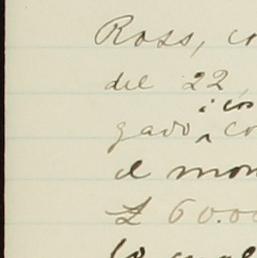 Ross, co
del 22,
i los
gado ‸ co
el mon
£ 60.00